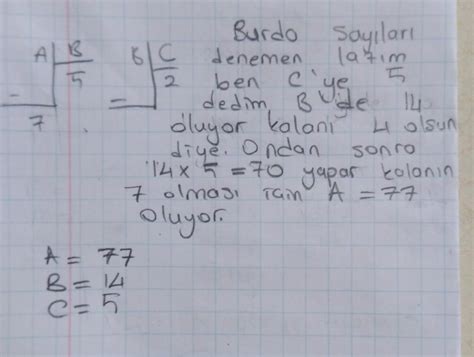 A | B
5
7
B | C
2
Burdo sayıları
denemen lazım
ben C'ye 5
dedim B'de 14
oluyor kalanı 4 olsun
diye. Ondan sonro
14 x 5 = 70 yapar kalanın
7 olması için A = 77
oluyor.
A = 77
B = 14
C = 5